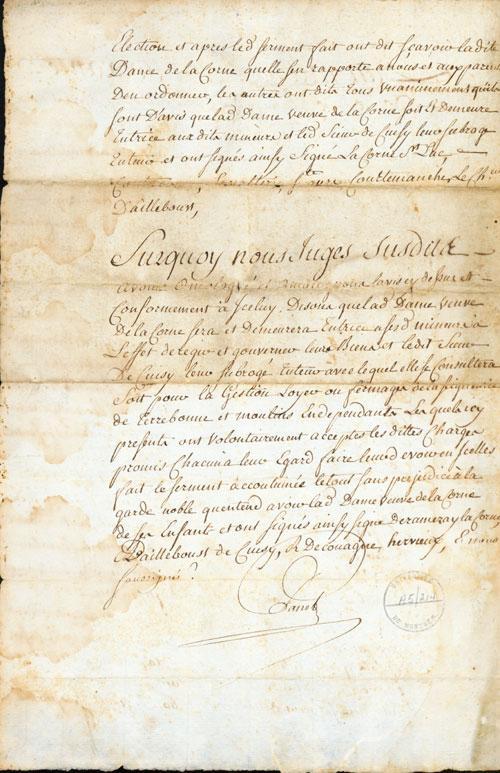 Election et apres led serment fait ont dit scavoir ladite
Dame de la Corne quelle sen rapporte a nous et auxparens
Den ordonner, les autres ont dits tous unanimement quils
sont Davis quelad Dame veuve de la Corne soit Et Demeure
Tutrice aux dits mineurs et led Sieur de Cuisy leur subrogé
Tuteur et ont signés ainsy Signé La Corne St Luc
Courtemanche, Le Chr
Daillebous,
Surquoy nous Juges Susdits
avons
Conformement à Jceluy, Disons quelad Dame veuve
De la Corne sera et Demeurera Tutrice asesd mineurs a
Leffet deregir et gouverner leurs Biens et ledit Sieur
de Cuisy leur subrogé Tuteur avec lequel elle se Consultera
soit pour la Gestion Loyer ou fermage dela seigneurie
de Terrebonne et moulins En dependants Lesquels icy
presents ont volontairement acceptés les dittes Charges
promis Chacun a leur Egard faire leur devoir en Jcelles
fait le serment accoutumée letout sans prejudice à la
garde noble quentend avoir lad Dame veuve de la Corne
de ses Enfants et ont signés ainsy signé Deramezay la Corne
Dailleboust de Cuisy, R Decouagne, hervieux, Et nous
soussignés
Danré
A5/214
DE MONTREAL